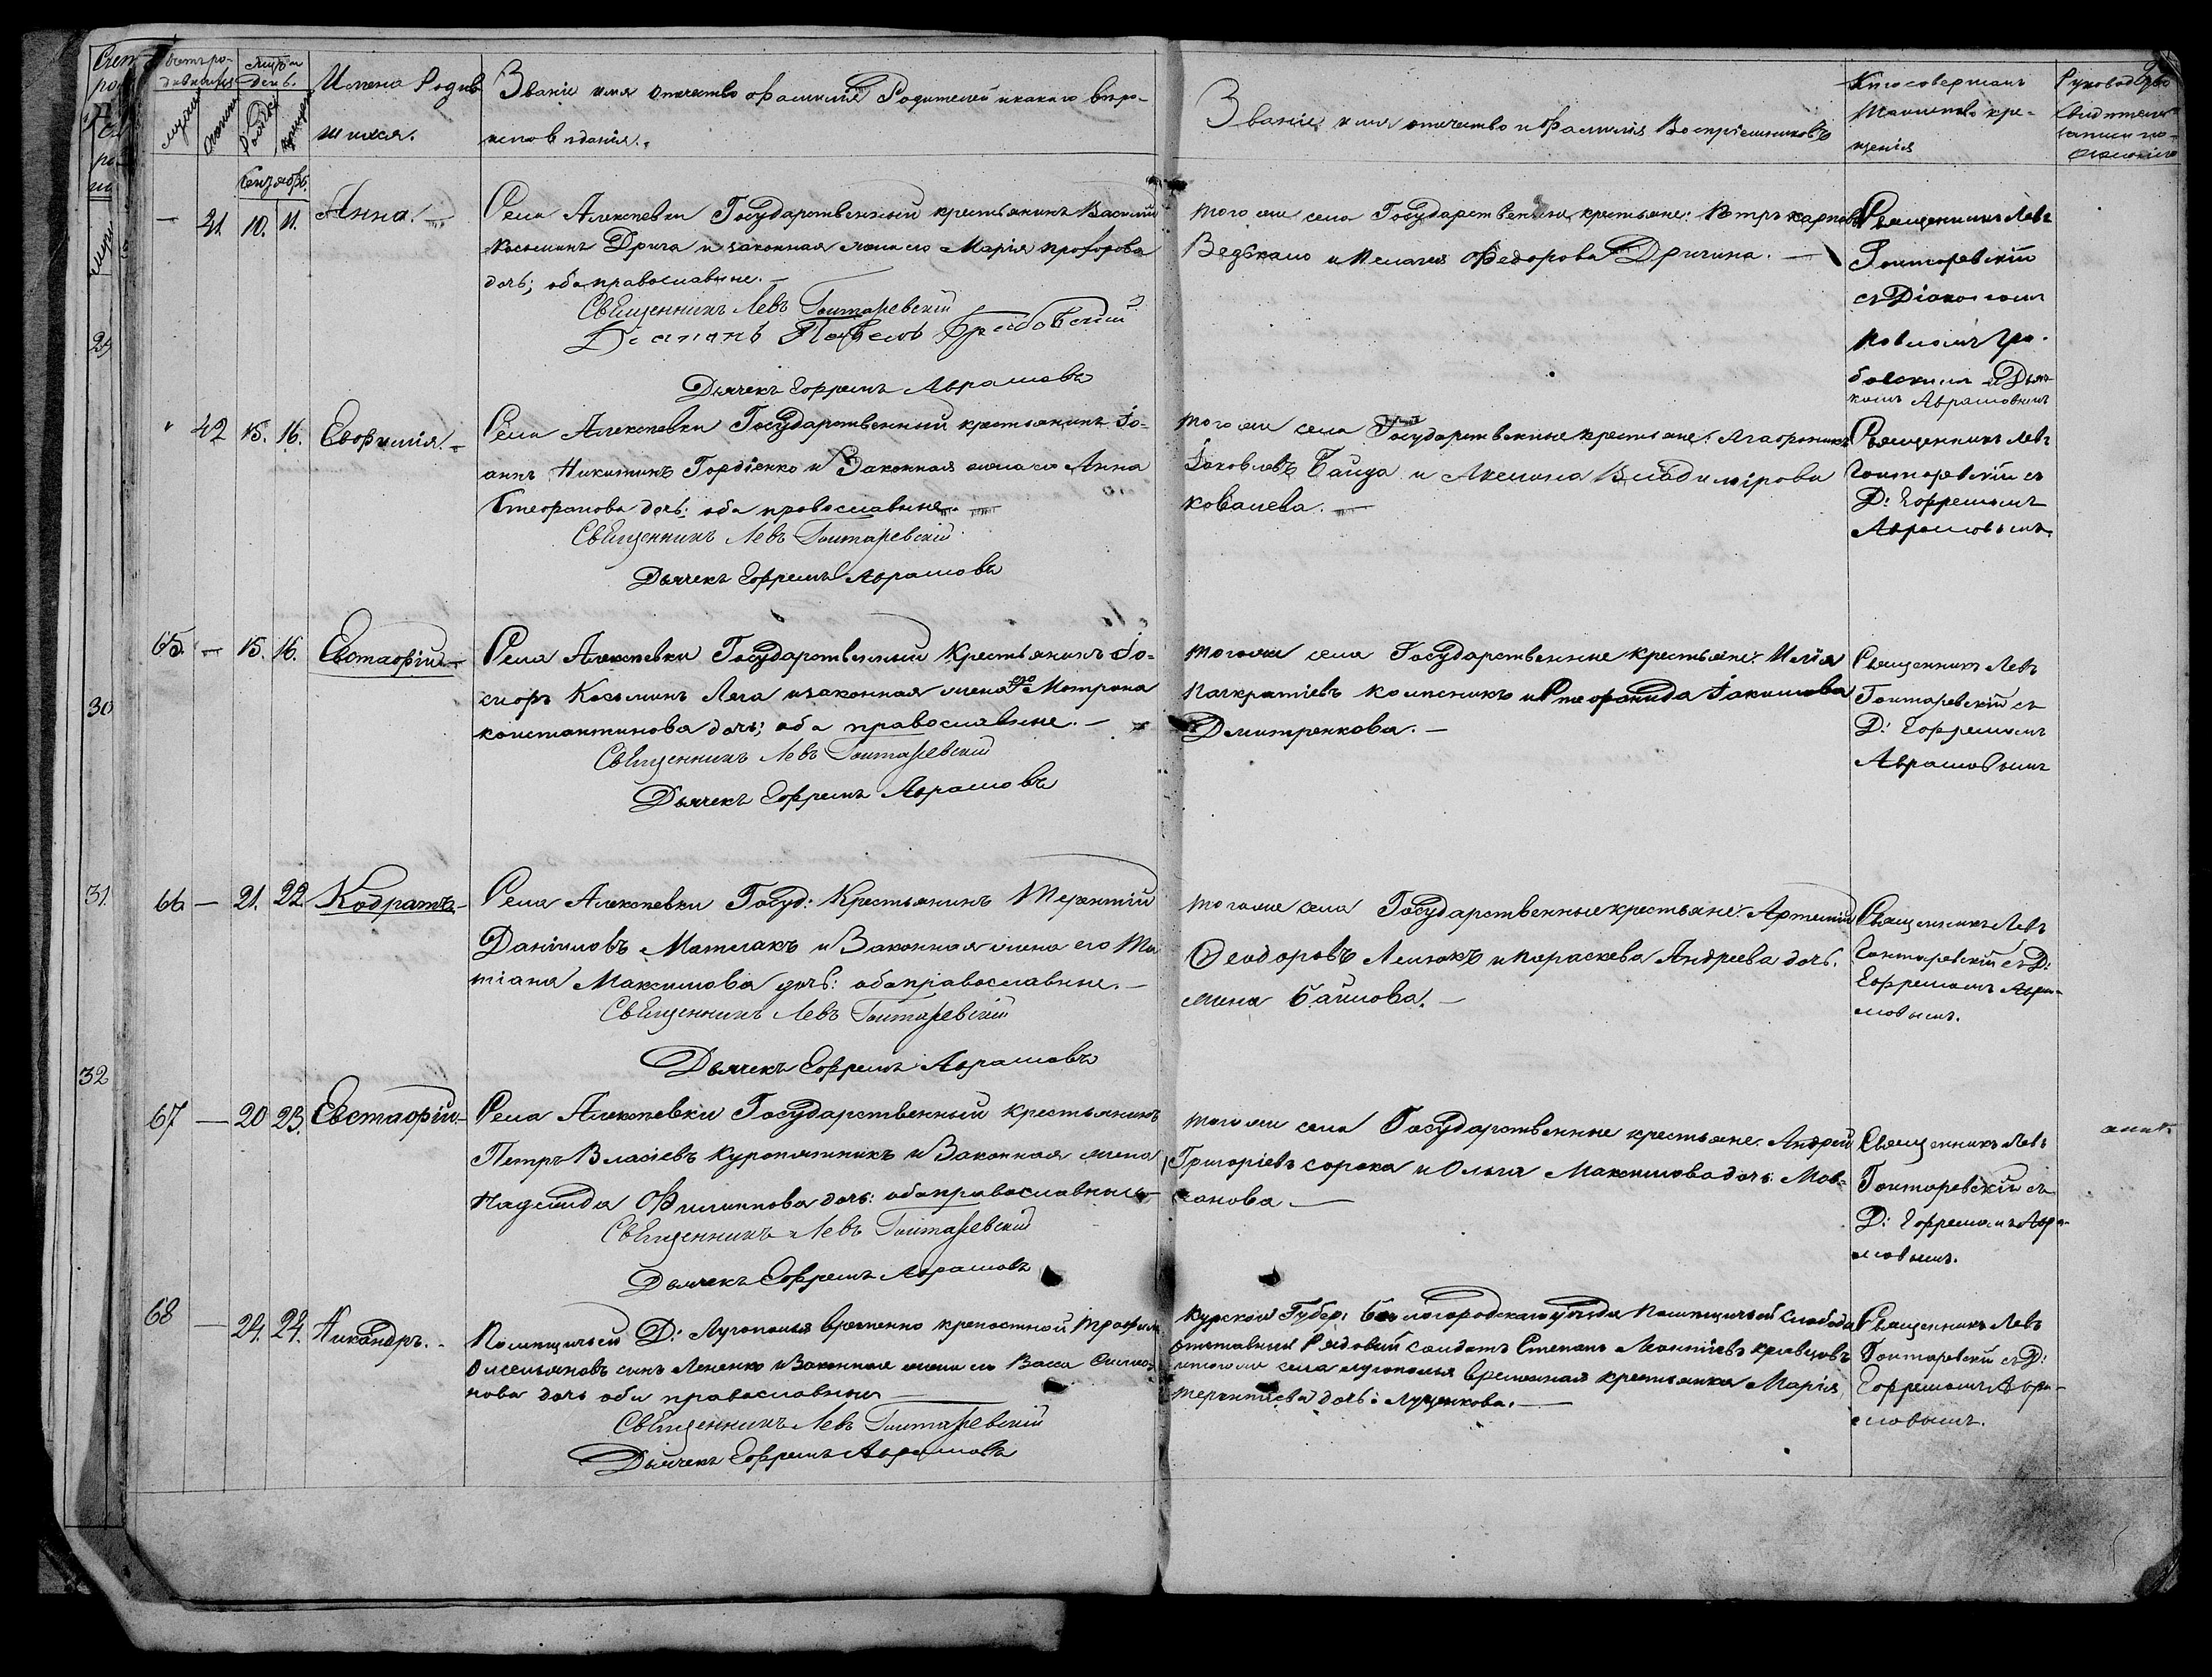 Счетъ ро-
дившихся
Мѣсяцъ и
День.
Имена Родив
шихся.
Званіе имя отечество и фамилія Родителей и какаго вѣро-
исповѣданія.
Званіе, имя отечество и фамилія Воспріемниковъ
Кто совершалъ
Таинство кре-
щенія
Сентябрь.
— 41. 10. 11. Анна. —
Села Алексѣевки Государственный крестьянинъ Василій
Косьминъ Дрига и законная жена его Марія Прохорова
дочь; оба православные. —
Священникъ Левъ Гонтаревскій
Діаконъ Павелъ Грабовскій
Дьячекъ Ефремъ Аврамовъ
того же села Государственные крестьяне: Петръ Карповъ
и Пелагея Федорова Дригина. —
Священникъ Левъ
Гонтаревскій
съ Діакономъ
Павломъ Гра-
бовскимъ и Дьяч-
комъ Аврамовымъ
29
" 42 15. 16. Евфимія. —
Села Алексѣевки Государственный крестьянинъ Іо-
аннъ Никитинъ Гордіенко и Законная жена его Анна
Стефанова дочь: оба православные. —
Священникъ Левъ Гонтаревскій
Дьячекъ Ефремъ Аврамовъ
того же села Государственные крестьяне: Агафоникъ
Іаковлевъ Байда и Акилина Владимірова
Ковалева. —
Священникъ Левъ
Гонтаревскій съ
Д: Ефремомъ
Аврамовымъ.
65. — 15. 16. Евстафій —
Села Алексѣевки Государственный Крестьянинъ Іо-
сифъ Косьминъ Лега и законная жена его Матрона
Константинова дочь; оба православные. —
Священникъ Левъ Гонтаревскій
Дьячекъ Ефремъ Аврамовъ
того же села Государственные крестьяне: Илія
Панкратіевъ Колесникъ и Стефанида Іакимова
Дмитренкова. —
Священникъ Левъ
Гонтаревскій съ
Д: Ефремомъ
Аврамовымъ
30
31
66 — 21. 22 Кодратъ —
Села Алексѣевки Госуд: Крестьянинъ Терентій
Даніиловъ Матлакъ и Законная жена его Та
тіана Максимова дочь: оба православные. —
Священникъ Левъ Гонтаревскій
Дьячекъ Ефремъ Аврамовъ
того же села Государственные крестьяне: Артемій
Феодоровъ и Параскева Андреева дочь.
Священникъ Левъ
Гонтаревскій съ Д:
Ефремомъ Авра-
мовымъ.
32
67 — 20 23. Евстафій —
Села Алексѣевки Государственный крестьянинъ
Петръ Власіевъ Куропятникъ и Законная жена
Надежда Филиппова дочь: оба православные —
Священникъ Левъ Гонтаревскій
Дьячекъ Ефремъ Аврамовъ
того же села Государственные крестьяне: Андрей
Григоріевъ Сорока и Ольга Максимова дочь: Мов-
чанова —
Священникъ Левъ
Гонтаревскій съ
Д: Ефремомъ Авра-
мовымъ.
68 — 24. 24. Никандръ. —
Помѣщичьей Д: Лугополья временно крепостной Трофимъ
Омельяновъ сынъ и Законная жена его Васса
дочь оба православные —
Священникъ Левъ Гонтаревскій
Дьячекъ Ефремъ Аврамовъ
Курской Губер: Бѣлогородскаго уѣзда Помѣщичьей Слободы
отставный Рядовый солдатъ Степанъ Кравцовъ
села Лугополья временная крестьянка Марія
Терентіева дочь: Луценкова. —
Священникъ Левъ
Гонтаревскій съ Д:
Ефремомъ Авра-
мовымъ.